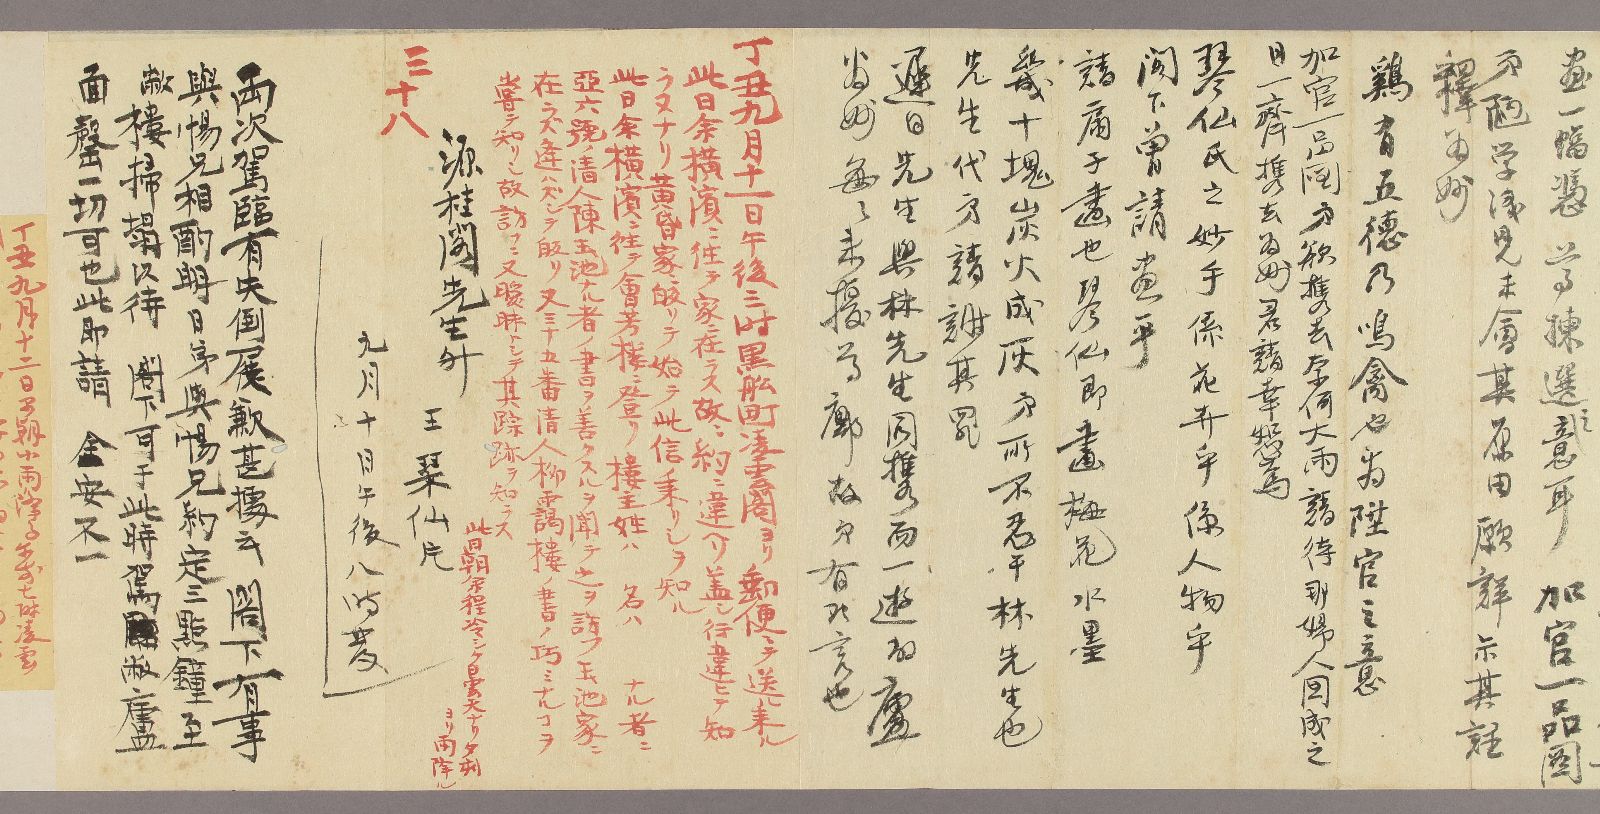 画一幅憑尊揀選之意耳　加官一品図
弟陋学浅見未會其原由願詳示其註
釋為妙
鶏有五徳乃鳴禽也為陞官之意
加官一品図弟欲携去奈何大雨請待那婦人回成之
日一齊携去為妙君請幸恕焉
琴仙氏之妙手係花卉乎係人物乎
閣下曽請画乎
請扇子畫也琴仙即畫梅花水墨
幾十塊炭火成灰弟所不忍于林先生也
先生代弟請謝其罪
遲日先生與林先生同携而一遊弟廬
為妙每々来擾尊廚故弟有此言也
丁丑九月十一日午後三时黒舩町凌雲閣ヨリ郵便ニテ送ル来ル
此日余横濱ニ往テ家ニ在ラス故ニ約ニ違ヘリ蓋シ行違ヒテ知
ラ又ナリ黄昏家ニ皈リテ始テ此信来リシヲ知ル
此日余横濱ニ往テ會芳樓ニ登リ樓主姓ハ　名ハ　ナル者ニ
亞六强ノ清人陳玉池ナル者ノ書ヲ善クスルヲ聞テ之ヲ訪フ玉池家ニ
在ラス逢ハズシテ皈リ又三十五番清人柳靄樓ノ書ノ巧ミナルコヲ
嘗テ知リシ故訪フニ又聢时トシテ其踪跡ヲ知ラス
此日朝余程冷シク曇天ナリ夕刻
ヨリ雨降ル
源桂閣先生升
王琹仙氏
九月十日午後八时發
三十八
兩次駕臨有失倒屐歉甚據云　閣下有事
與惕兄相酌明日弟與惕兄約定三點鐘至
敝樓掃榻以待　閣下可于此時駕臨敝廬
面罄一切可也此即請　金安不一
丁丑九月十二日早朝小雨降ル